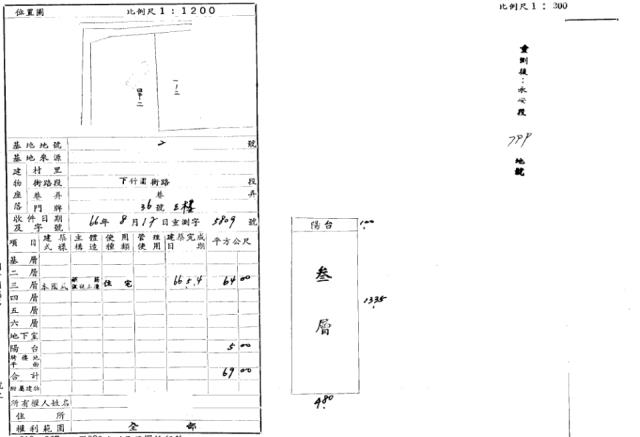 位置圖 比例尺1:1200
比例尺1: 300
重測後:永安段
地號
基地地號 2 號
基地來源
建物座落
村里
街路段 下竹圍街路 段
巷弄 巷 弄
門牌 36號 三樓
收件日期及字號 66年8月17日重測字5809號
項目 建築式樣 主體構造 使用種類 管理使用 建築完成日期 平方公尺
基層
二層
三層 本國式 住宅 66.5.4 64 00
四層
五層
六層
地下室
陽台 5 00
騎樓地平面
合計 69 00
附屬建物
所有權人姓名
住所
權利範圍 全部
陽台
100
叁層
1335
480